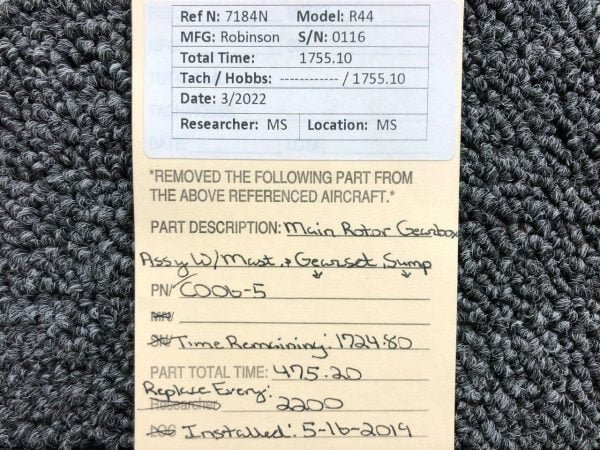 Ref N: 7184N Model: R44
MFG: Robinson S/N: 0116
Total Time: 1755.10
Tach / Hobbs: ----------- / 1755.10
Date: 3/2022
Researcher: MS Location: MS
*REMOVED THE FOLLOWING PART FROM
THE ABOVE REFERENCED AIRCRAFT.*
PART DESCRIPTION: Main Rotor Gearbox
Assy W/Mast & Gearset Sump
PN/ C006-5
SN/ Time Remaining: 1724.80
PART TOTAL TIME: 475.20
Replace Every:
Researcher 2200
Installed: 5-16-2019